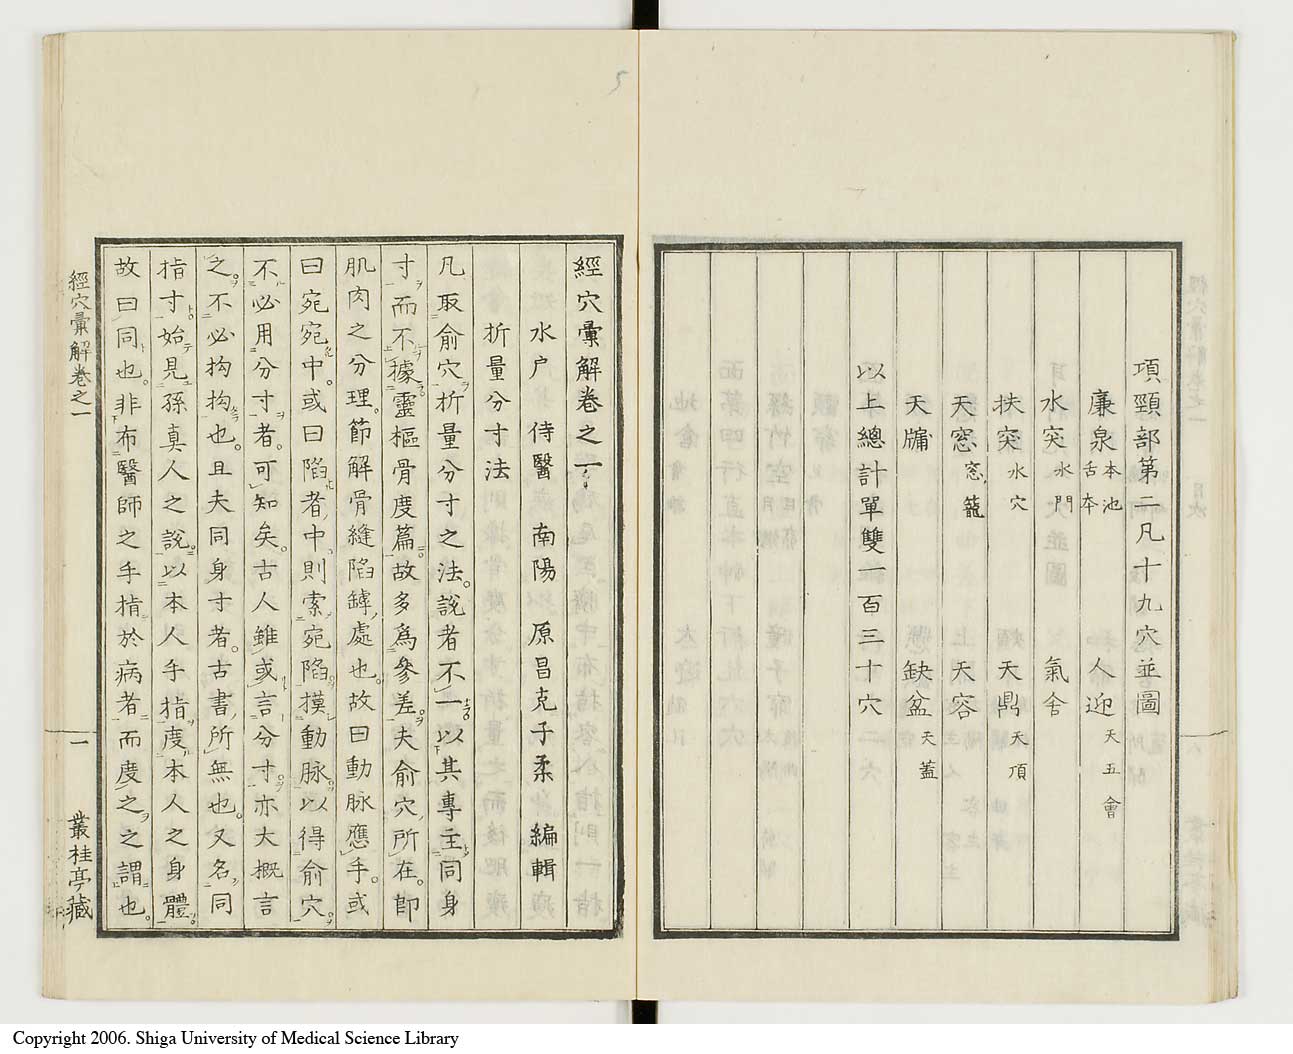 項頸部第二凡十九穴並圖
廉泉 本池 舌本 人迎 天五會
水突 水門 氣舍
扶突 水穴 天鼎 天頂
天窓 窓籠 天容
天牖 缺盆 天蓋
以上總計單雙一百三十穴
經穴彙解卷之一
水戶 侍醫 南陽 原昌克子柔 編輯
折量分寸法
凡取俞穴折量分寸之法。說者不一以其專主同身
寸而不據靈樞骨度篇。故多為參差。夫俞穴所在。即
肌肉之分理。節解骨縫陷罅處也。故曰動脉應手。或
曰宛宛中。或曰陷者中、則索宛陷摸動脉以得俞穴。
不必用分寸者。可知矣。古人雖或言分寸。亦大概言
之。不必拘拘也。且夫同身寸者。古書所無也。又名同
指寸始見孫真人之說。以本人手指度本人之身體。
故曰同也。非布醫師之手指於病者而度之之謂也。
經穴彙解卷之一
一
叢桂亭藏
5
Copyright 2006. Shiga University of Medical Science Library